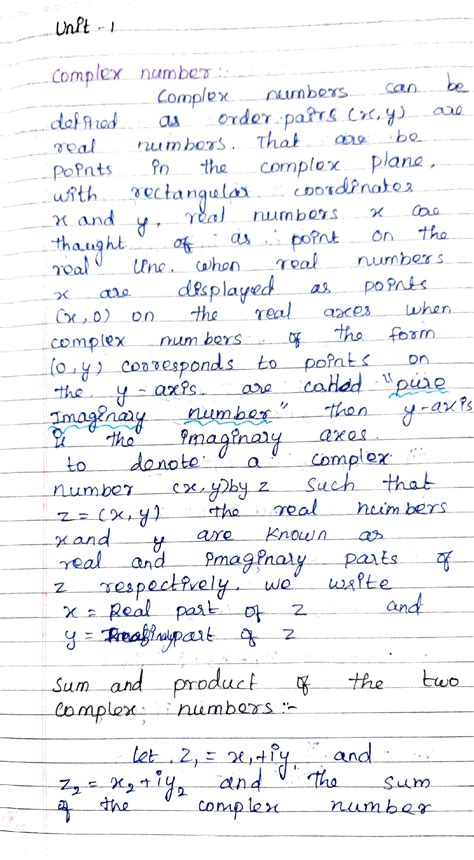 Unit - 1
Complex number :-
Complex numbers can be
defined as order pairs (x, y) are
real numbers. That are be
points in the complex plane,
with rectangular coordinates
x and y, real numbers x are
thaught of as point on the
real line. when real numbers
x are displayed as points
(x, 0) on the real axes when
complex numbers of the form
(0, y) corresponds to points on
the y-axis. are called "pure
Imaginary number" then y-axis
is the imaginary axes.
to denote a complex
number (x, y) by z such that
z = (x, y) the real numbers
x and y are known as
real and imaginary parts of
z respectively. we write
x = Real part of z and
y = part of z
Sum and product of the two
complex numbers :-
Let z₁ = x₁ + iy, and
z₂ = x₂ + iy₂ and the sum
of the complex number